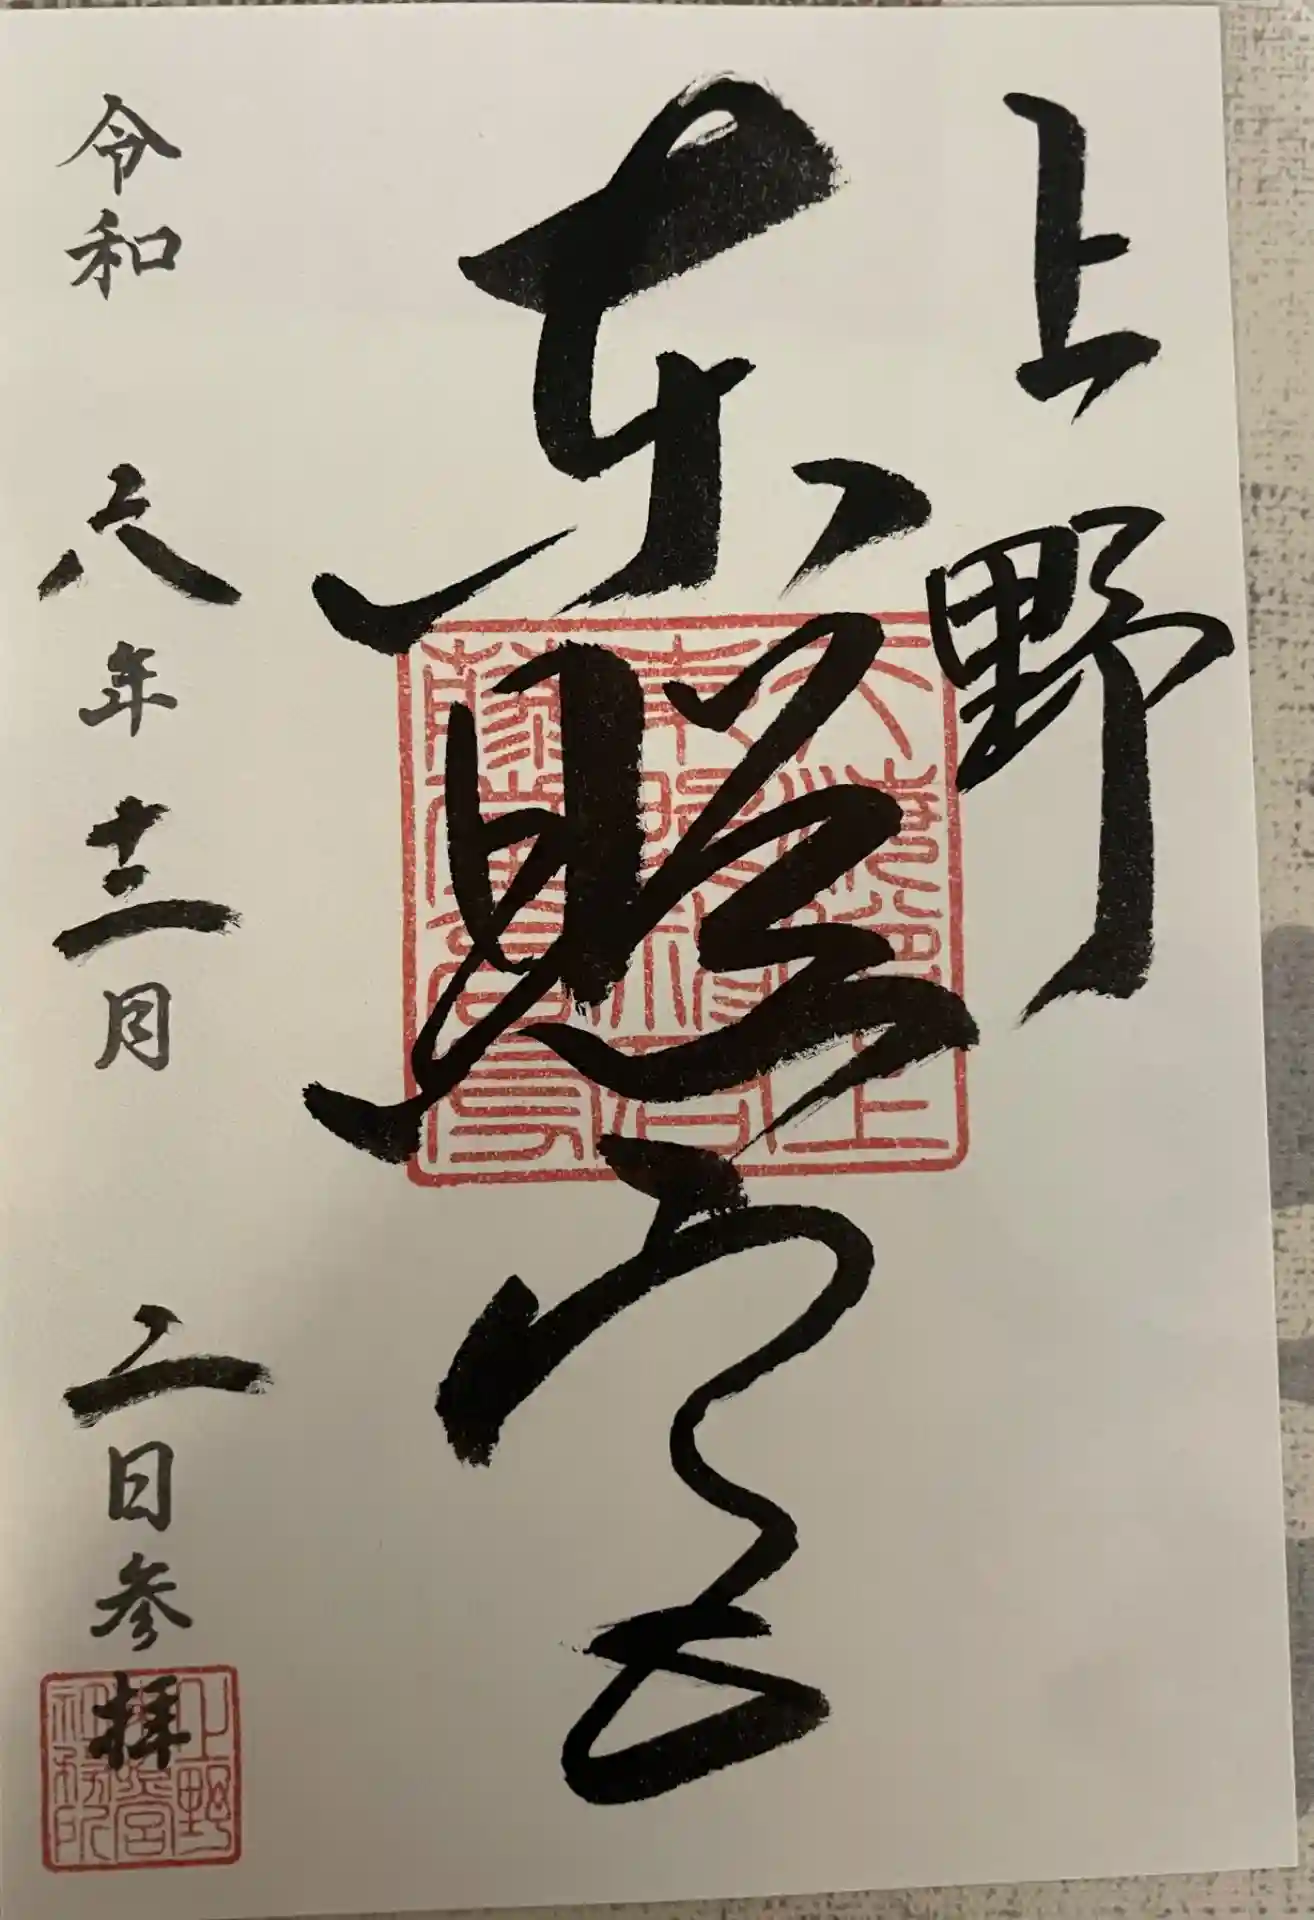 上野
東照宮
令和六年十二月二日参拝
上野
東照宮
社務所